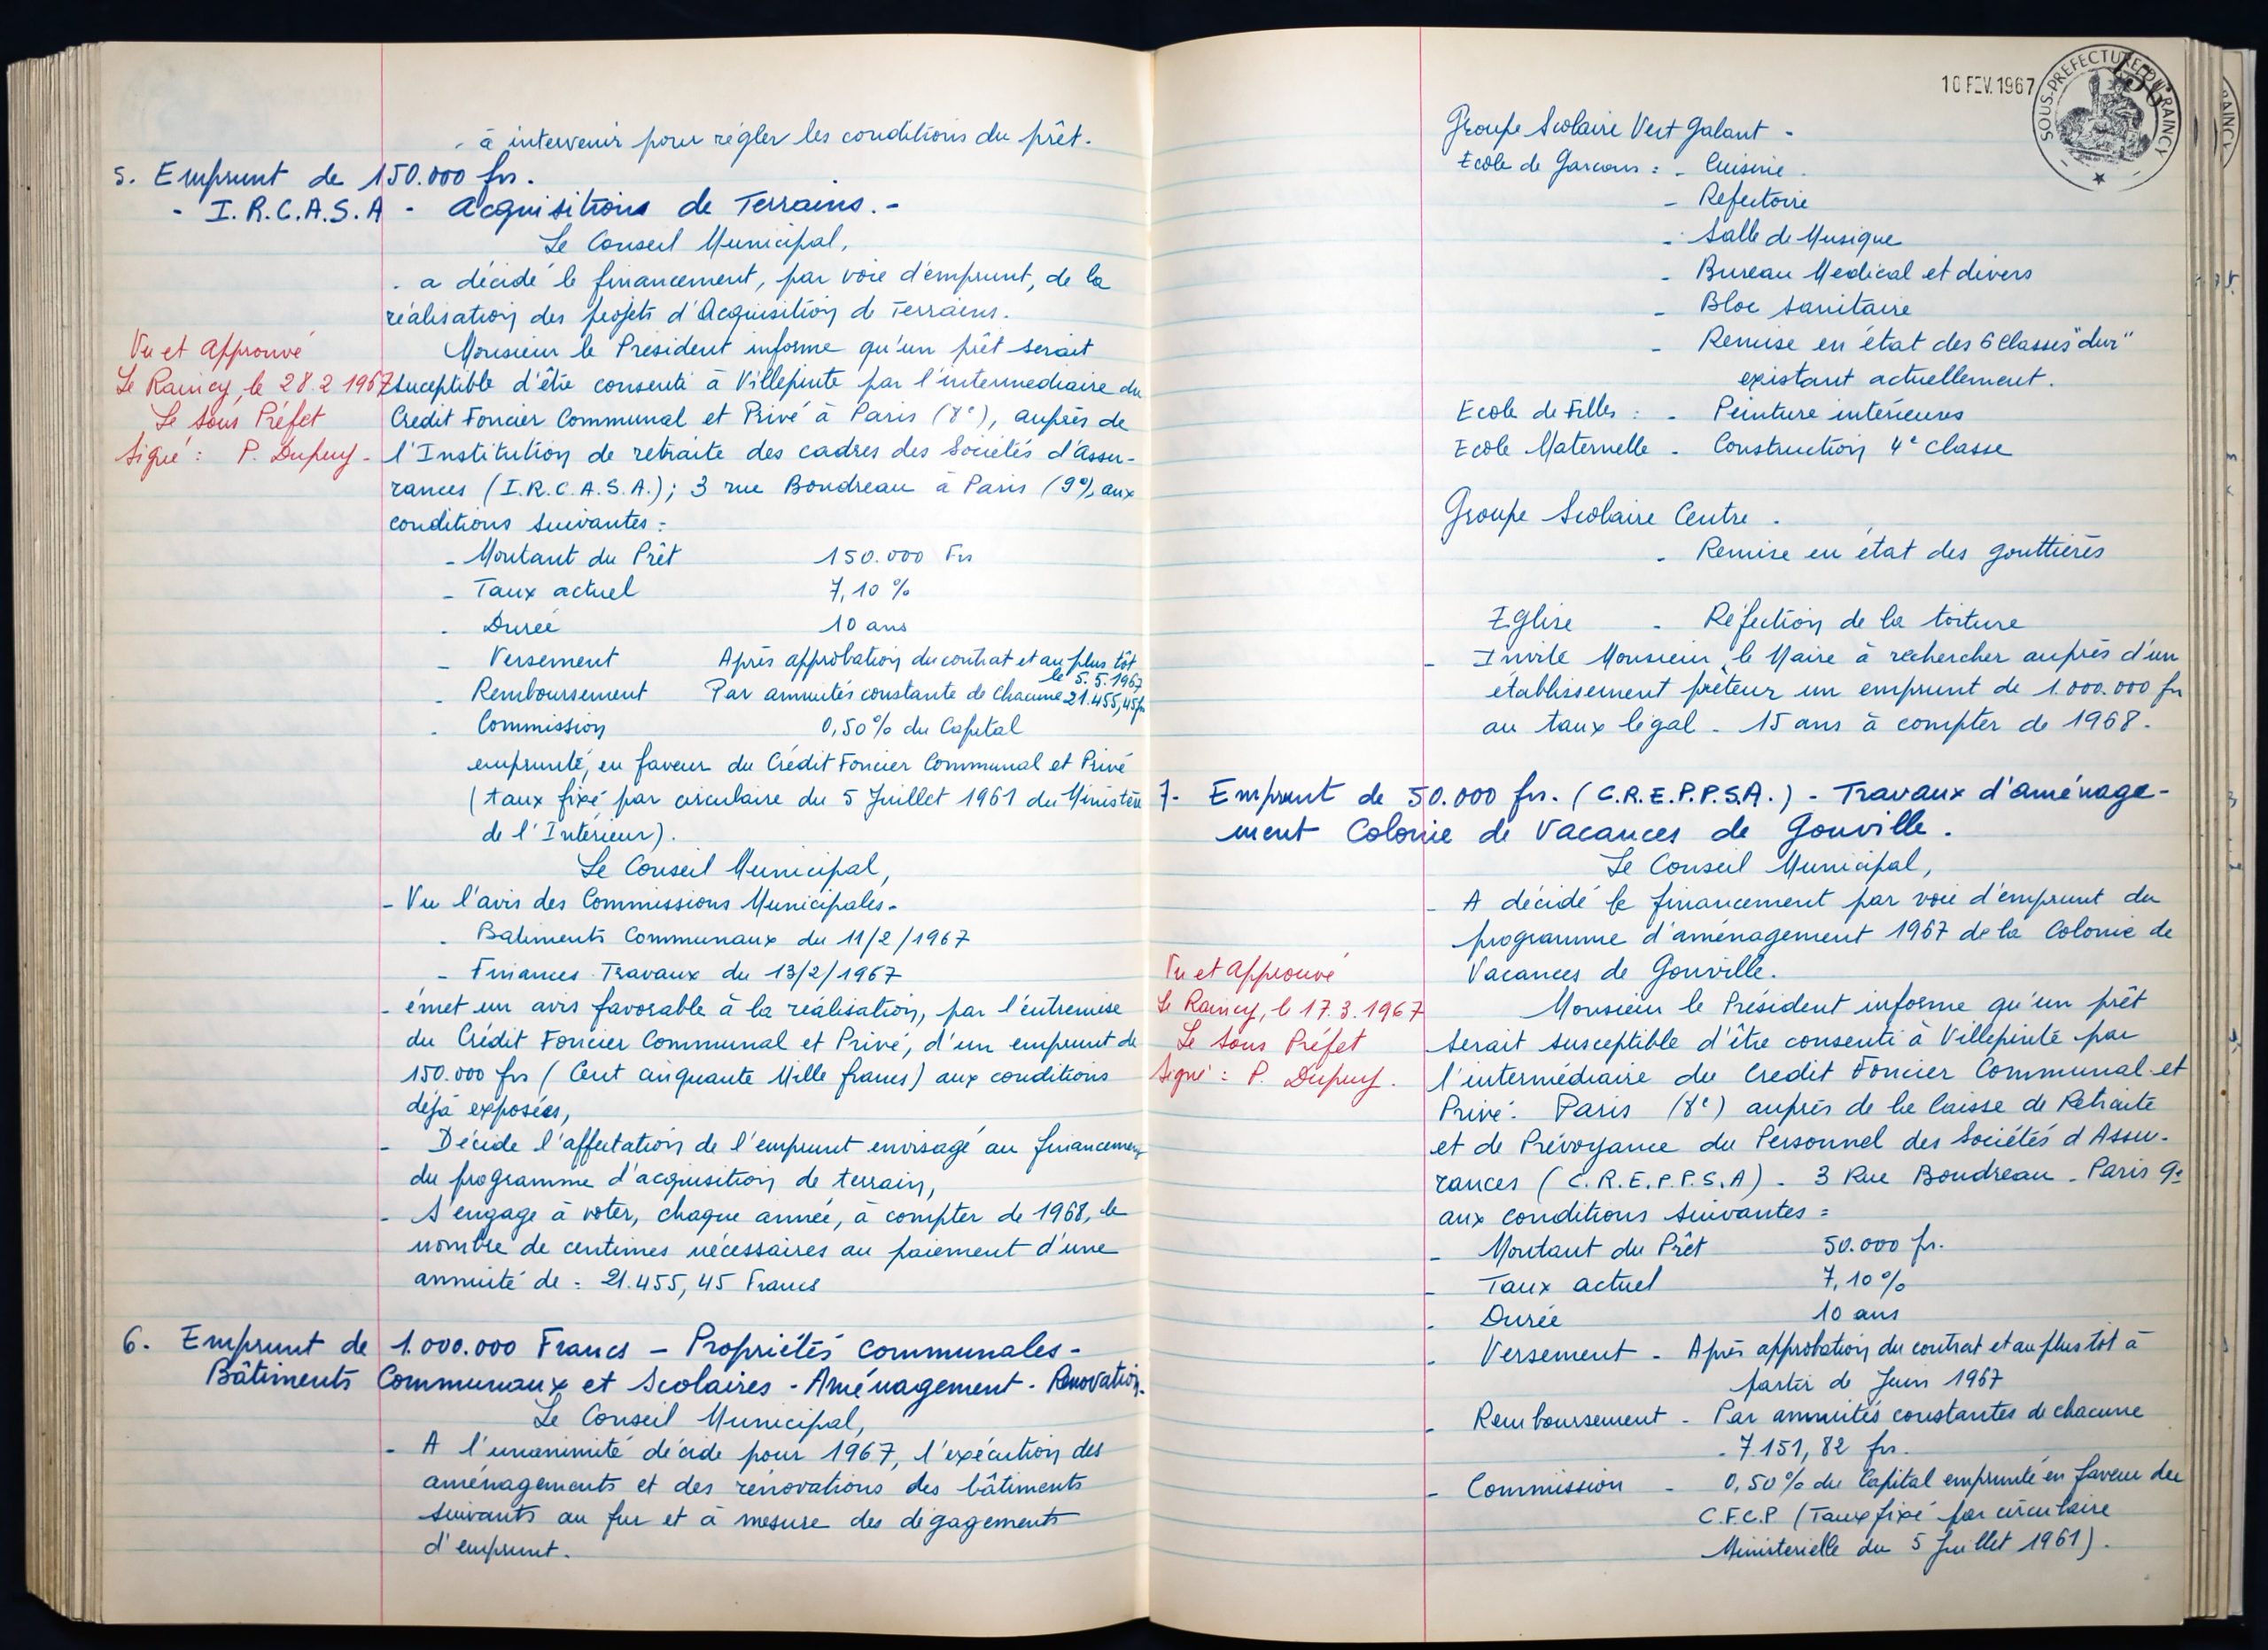 - à intervenir pour régler les conditions du prêt.
5. Emprunt de 150.000 frs.
- I.R.C.A.S.A - Acquisitions de Terrains.-
Le Conseil Municipal,
- a décidé le financement, par voie d'emprunt, de la
réalisation des projets d'Acquisition de Terrains.
Monsieur le Président informe qu'un prêt serait
suceptible d'être consenti à Villepinte par l'intermediaire du
Crédit Foncier Communal et Privé à Paris (8e), auprès de
l'Institution de retraite des cadres des Sociétés d'Assu-
rances (I.R.C.A.S.A.); 3 rue Boudreau à Paris (9e), aux
conditions suivantes :
- Montant du Prêt 150.000 Frs
- Taux actuel 7,10 %
- Durée 10 ans
- Versement Après approbation du contrat et au plus tôt
le 5.5.1967
- Remboursement Par annuités constante de chacune 21.455,45 fr
- Commission 0,50% du Capital
emprunté, en faveur du Crédit Foncier Communal et Privé
(taux fixé par circulaire du 5 Juillet 1961 du Ministère
de l'Intérieur).
Le Conseil Municipal,
- Vu l'avis des Commissions Municipales-
- Batiments Communaux du 11/2/1967
- Finances Travaux du 13/2/1967
- émet un avis favorable à la réalisation, par l'entremise
du Crédit Foncier Communal et Privé, d'un emprunt de
150.000 frs (Cent cinquante Mille francs) aux conditions
déjà exposées,
- Décide l'affectation de l'emprunt envisagé au financement
du programme d'acquisition de terrain,
- S'engage à voter, chaque année, à compter de 1968, le
nombre de centimes nécessaires au paiement d'une
annuité de : 21.455,45 Francs
Vu et Approuvé
Le Raincy, le 28.2 1967
Le Sous Préfet
Signé : P. Dupuy -
6. Emprunt de 1.000.000 Francs - Propriétés Communales -
Bâtiments Communaux et Scolaires - Aménagement - Rénovation.
Le Conseil Municipal,
- A l'unanimité décide pour 1967, l'exécution des
aménagements et des rénovations des bâtiments
suivants au fur et à mesure des dégagements
d'emprunt.
10 FEV. 1967
SOUS-PREFECTURE DU RAINCY
Groupe Scolaire Vert Galant -
Ecole de Garcons : - Cuisine.
- Refectoire
- Salle de Musique
- Bureau Medical et divers
- Bloc sanitaire
- Remise en état des 6 classes "dur"
existant actuellement.
Ecole de Filles : - Peinture intérieures
Ecole Maternelle - Construction 4e classe
Groupe Scolaire Centre -
- Remise en état des gouttières
Eglise - Réfection de la toiture
- Invite Monsieur le Maire à rechercher auprès d'un
établissement prêteur un emprunt de 1.000.000 frs
au taux légal - 15 ans à compter de 1968.
7- Emprunt de 50.000 frs. (C.R.E.P.P.S.A.) - Travaux d'aménage-
ment Colonie de Vacances de Gouville.
Le Conseil Municipal,
- A décidé le financement par voie d'emprunt du
programme d'aménagement 1967 de la Colonie de
Vacances de Gouville.
Monsieur le Président informe qu'un prêt
serait susceptible d'être consenti à Villepinte par
l'intermédiaire du Credit Foncier Communal et
Privé. Paris (8e) auprès de la Caisse de Retraite
et de Prévoyance du Personnel des Sociétés d'Assu-
rances (C.R.E.P.P.S.A) - 3 Rue Boudreau - Paris 9e
aux conditions suivantes :
- Montant du Prêt 50.000 fr.
- Taux actuel 7,10%
- Durée 10 ans
- Versement - Après approbation du contrat et au plus tôt à
partir de Juin 1967
- Remboursement - Par annuités constantes de chacune
- 7.151,82 frs.
- Commission - 0,50% du Capital emprunté en faveur du
C.F.C.P (Taux fixé par circulaire
Ministerielle du 5 Juillet 1961).
Vu et Approuvé
Le Raincy, le 17.3.1967
Le Sous Préfet
Signé : P. Dupuy.